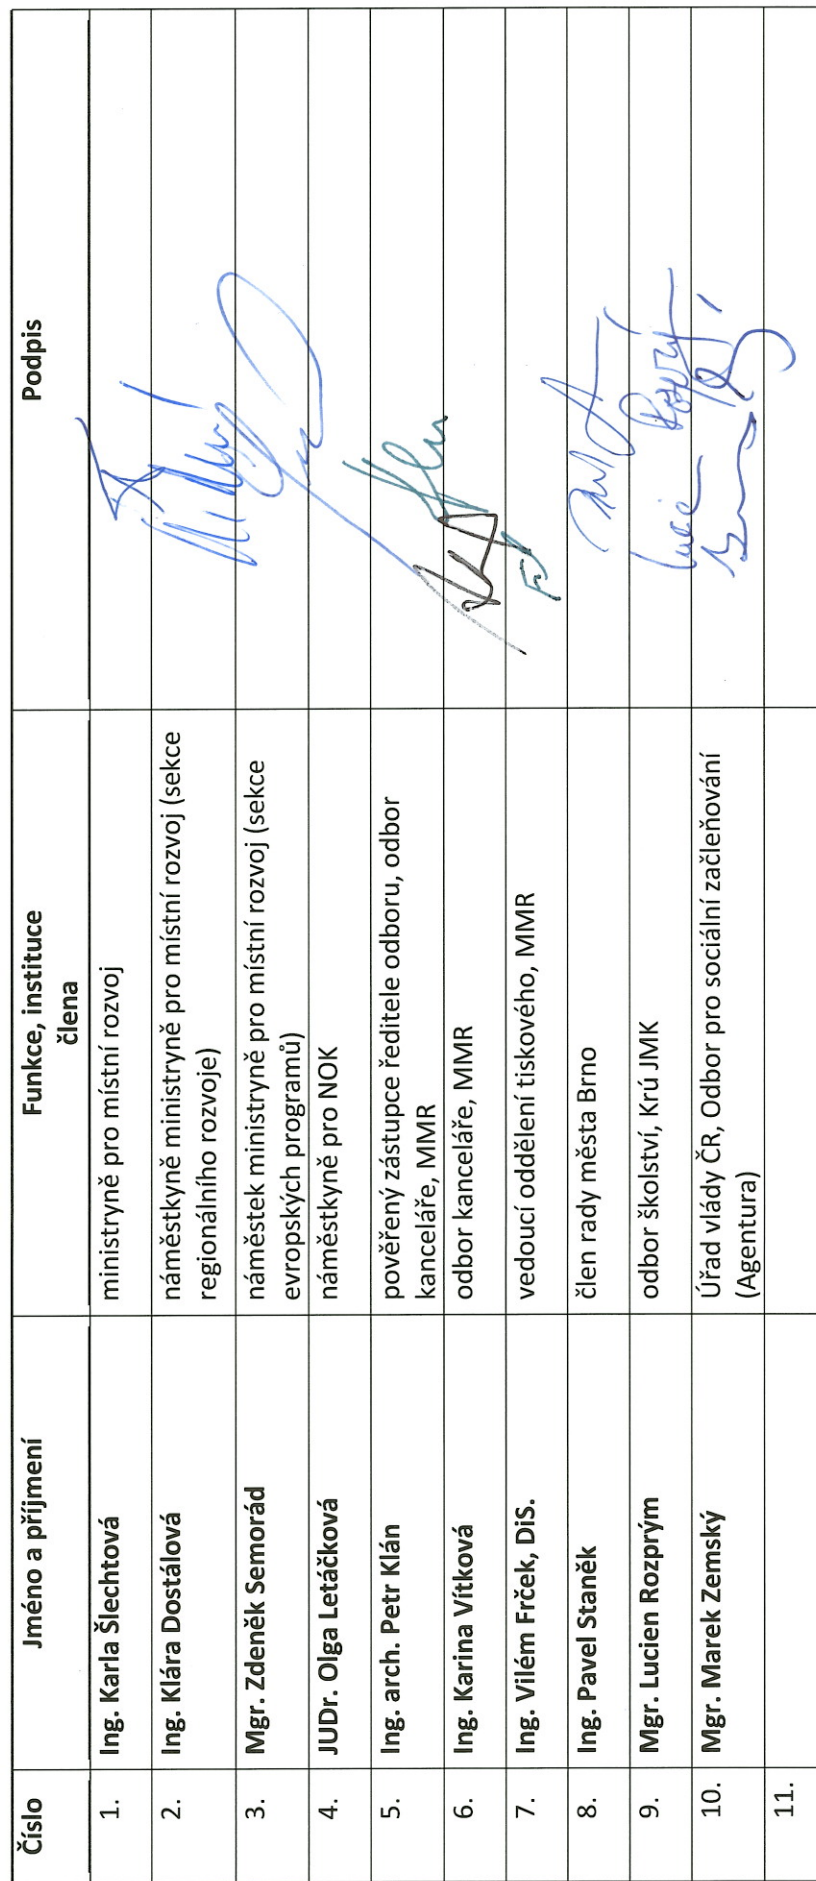 Číslo Jméno a příjmení Funkce, instituce Podpis
člena
1. Ing. Karla Šlechtová ministryně pro místní rozvoj
2. Ing. Klára Dostálová náměstkyně ministryně pro místní rozvoj (sekce
regionálního rozvoje)
3. Mgr. Zdeněk Semorád náměstek ministryně pro místní rozvoj (sekce
evropských programů)
4. JUDr. Olga Letáčková náměstkyně pro NOK
5. Ing. arch. Petr Klán pověřený zástupce ředitele odboru, odbor
kanceláře, MMR
6. Ing. Karina Vítková odbor kanceláře, MMR
7. Ing. Vilém Frček, DiS. vedoucí oddělení tiskového, MMR
8. Ing. Pavel Staněk člen rady města Brno
9. Mgr. Lucien Rozprým odbor školství, Krú JMK
10. Mgr. Marek Zemský Úřad vlády ČR, Odbor pro sociální začleňování
(Agentura)
11.